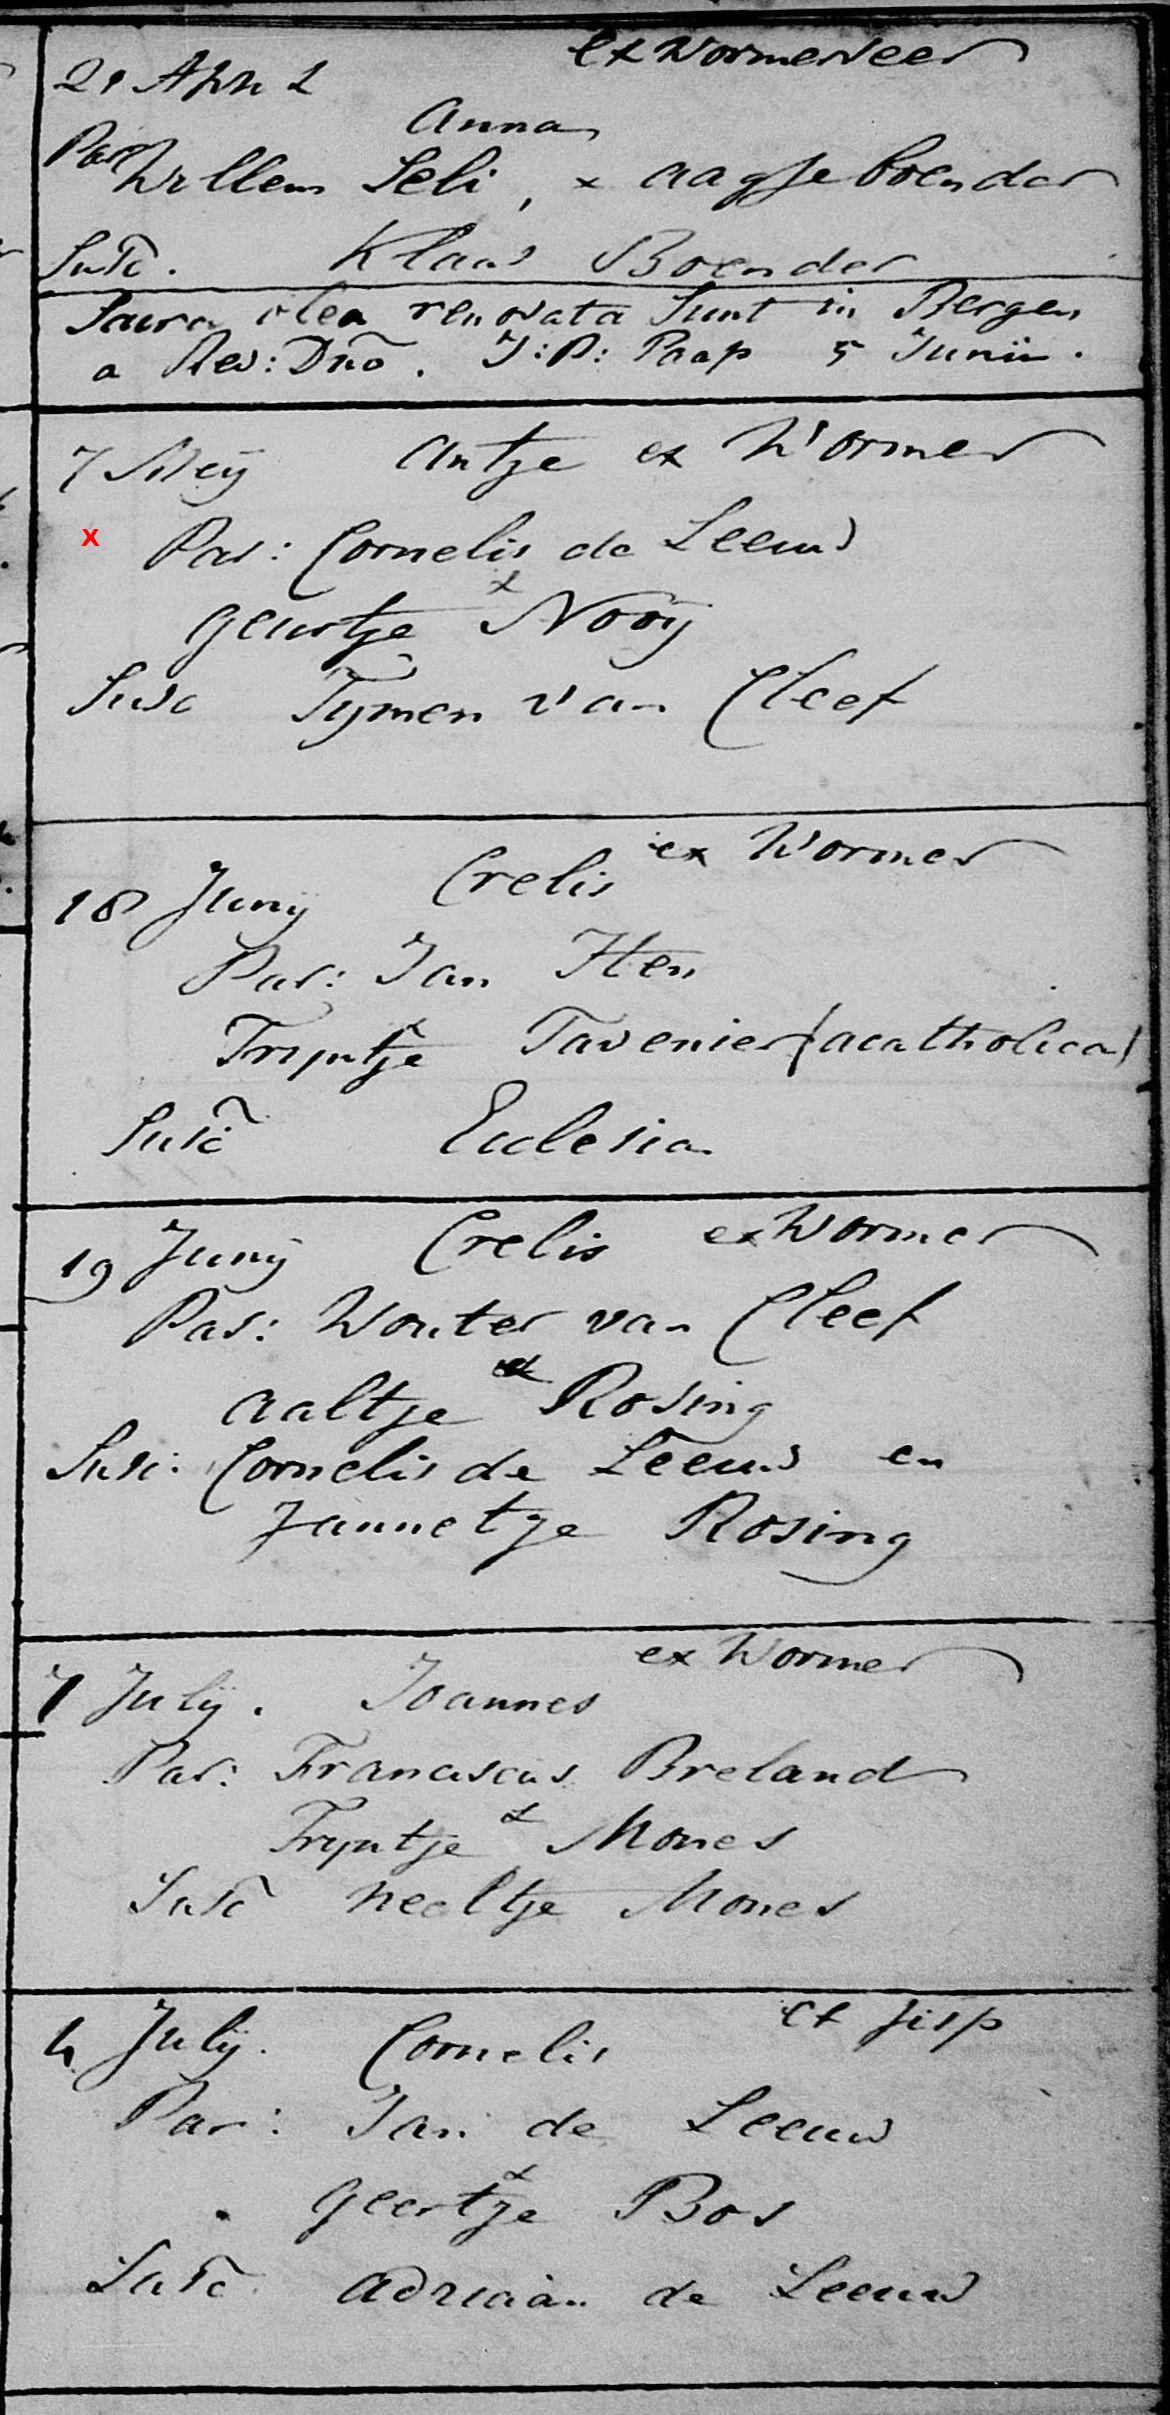 ex Wormerveer
21 April
Anna
Par Willem Seli, x aagje boender
Susc. Klaas Boender
Sacra olea renovata sunt in Bergen
a Rev: Dno. J: P: Paap 5 Junii.
7 Meij antje ex Wormer
x Par: Cornelis de Leeuw
x
geurtje Nooij
Susc Tijmen van Cleef
ex Wormer
18 Junij Crelis
Par: Jan Hen
x
Trijntje Tavenier (acatholica)
Susc Ecclesia
19 Junij Crelis ex Wormer
Par: Wouter van Cleef
x
aaltje Rosing
Susc: Cornelis de Leeuw en
Jannetje Rosing
ex Wormer
7 Julij. Joannes
Par: Franciscus Breland
x
Trijntje Mones
Susc Neeltje Mones
ex Jisp
4 Julij. Cornelis
Par: Jan de Leeuw
x
geertje Bos
Susc adriaan de Leeuw